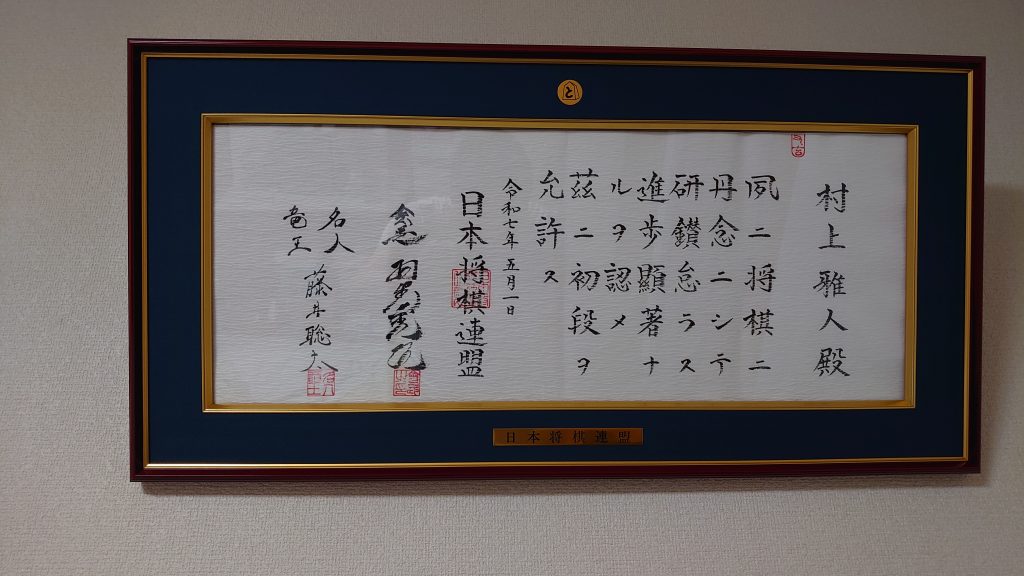 と
村上雅人殿
夙ニ将棋ニ
丹念ニシテ
研鑚怠ラス
進歩顯著ナ
ルヲ認メ
茲ニ初段ヲ
允許ス
令和七年五月一日
日本将棋連盟
会長 羽生善治
名人
竜王
藤井聡太
日本将棋連盟